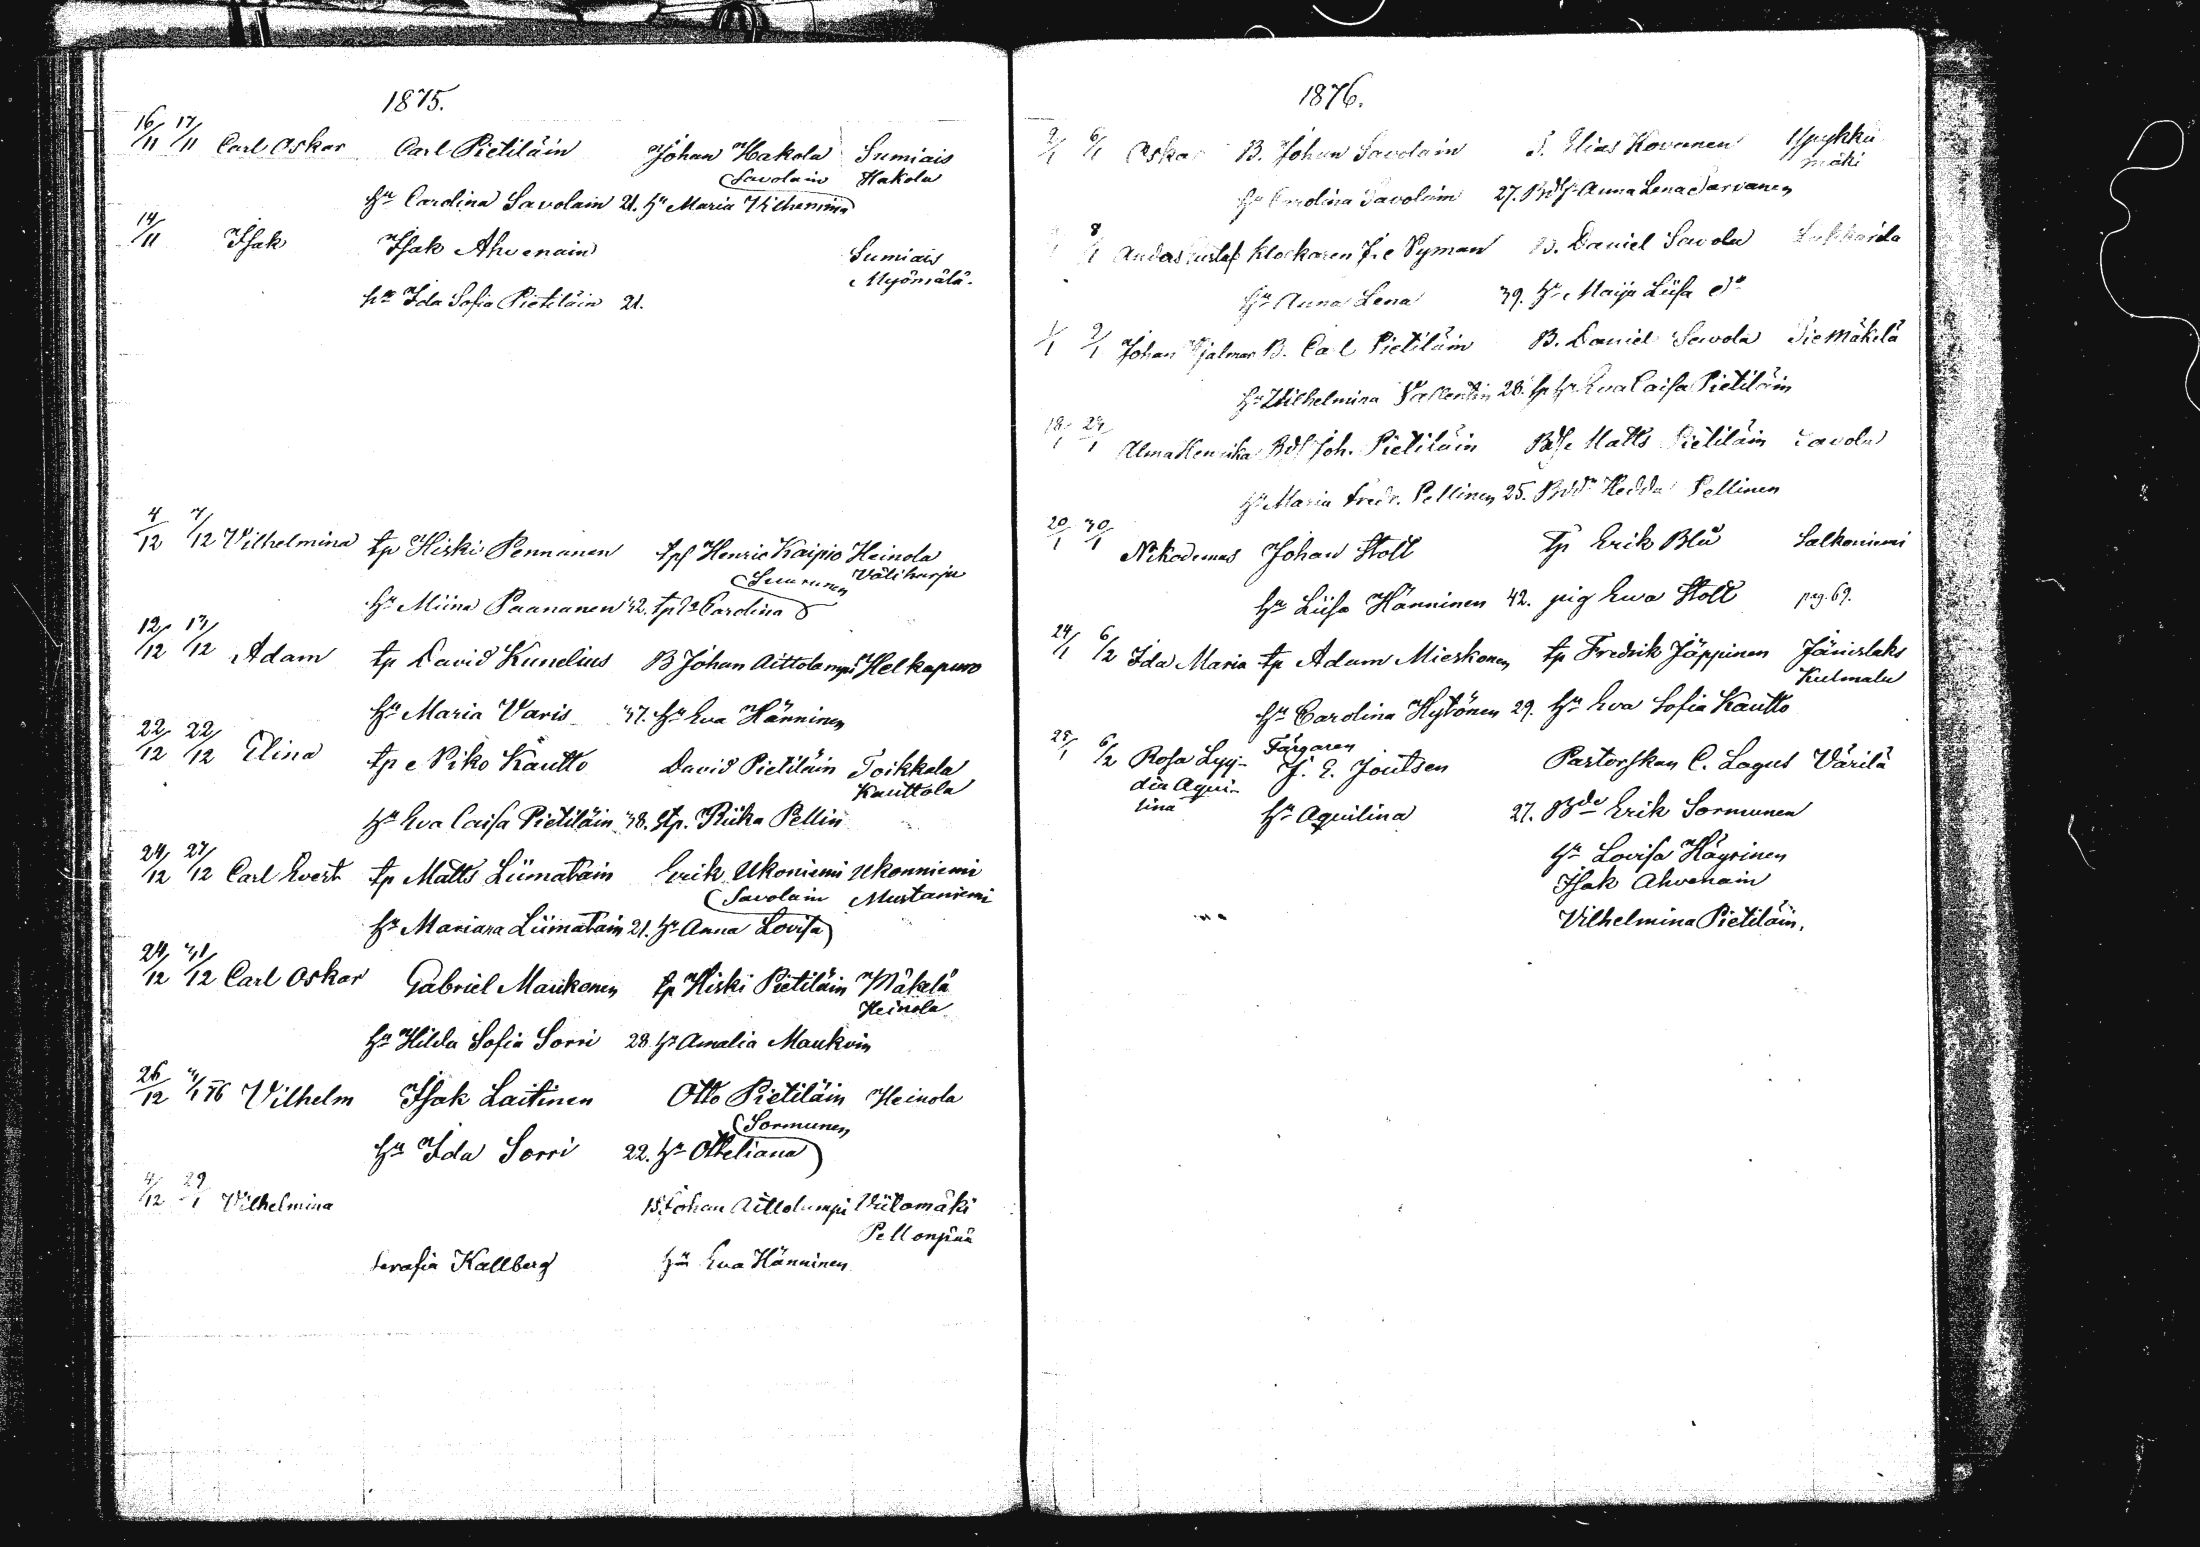 1875.
16/11 17/11 Carl Oskar Carl Pietiläin Johan Hakola Sumiais
Savolain Hakola
hu Carolina Savolain 21. hu Maria Vilhemina
14/11 Isak Isak Ahvenain Sumiais
Myömälä.
hu Ida Sofia Pietiläin 21.
4/12 7/12 Vilhelmina tp Hiski Pennanen tpf Henric Kaipio Heinola
Suurunen Väliharju
hu Miina Paananen 32. tpda Carolina
12/12 13/12 Adam tp David Kunelius B Johan Aittolampi Helkapuro
hu Maria Varis 37. hu Eva Hänninen
22/12 22/12 Elina tp Niko Kautto David Pietiläin Toikkala
Kauttola
hu Eva Caisa Pietiläin 38. Riika Pellin
24/12 27/12 Carl Evert tp Matts Liimatain Erik Ukoniemi Ukonniemi
Savolain Mustaniemi
hu Mariana Liimatain 21. hu Anna Lovisa
24/12 31/12 Carl Oskar Gabriel Maukonen tp Hiski Pietiläin Mäkelä
Heinola
hu Hilda Sofia Sorri 28. hu Amalia
26/12 76 Vilhelm Isak Laitinen Otto Pietiläin Heinola
Sormunen
hu Ida Sorri 22. hu Otteliana
4/12 29/1 Vilhelmina B. Johan Aittolampi Viitamäki
Pellonpää
Serafia Kallberg hu Eva Hänninen
1876.
2/1 6/1 Oskar B. Johan Savolain Elias Kovanen
mäki
hu Carolina Savolain 27. Anna Lena Parvanen
8/1 Anders Gustaf Klockaren Nyman B. Daniel Savola
hu Anna Lena 39. hu Maija Liisa do
1/1 9/1 Johan Hjalmar B. Carl Pietiläin B. Daniel Savola Mäkelä
hu Wilhelmina 28. Eva Caisa Pietiläin
18/1 Alma Henrika Joh. Pietiläin Matts Pietiläin Savola
hu Maria Fredr. Pellinen 25. Hedda Pellinen
20/1 30/1 Nikodemus Johan Stolt tp Erik Blå Salkoniemi
hu Liisa Hänninen 42. pig Eva Stolt pag. 69.
24/1 6/2 Ida Maria tp Adam Mieskonen tp Fredrik Jäppinen Jänislaks
Kulmala
hu Carolina Hytönen 29. hu Eva Sofia Kautto
28/1 6/2 Rosa Lyy- Färgaren
J. E. Joutsen Pastorskan C. Lagus Värilä
dia Aqui-
lina hu Aquilina 27. Erik Sormunen
hu Lovisa Häyrinen
Isak Ahvenain
Vilhelmina Pietiläin.